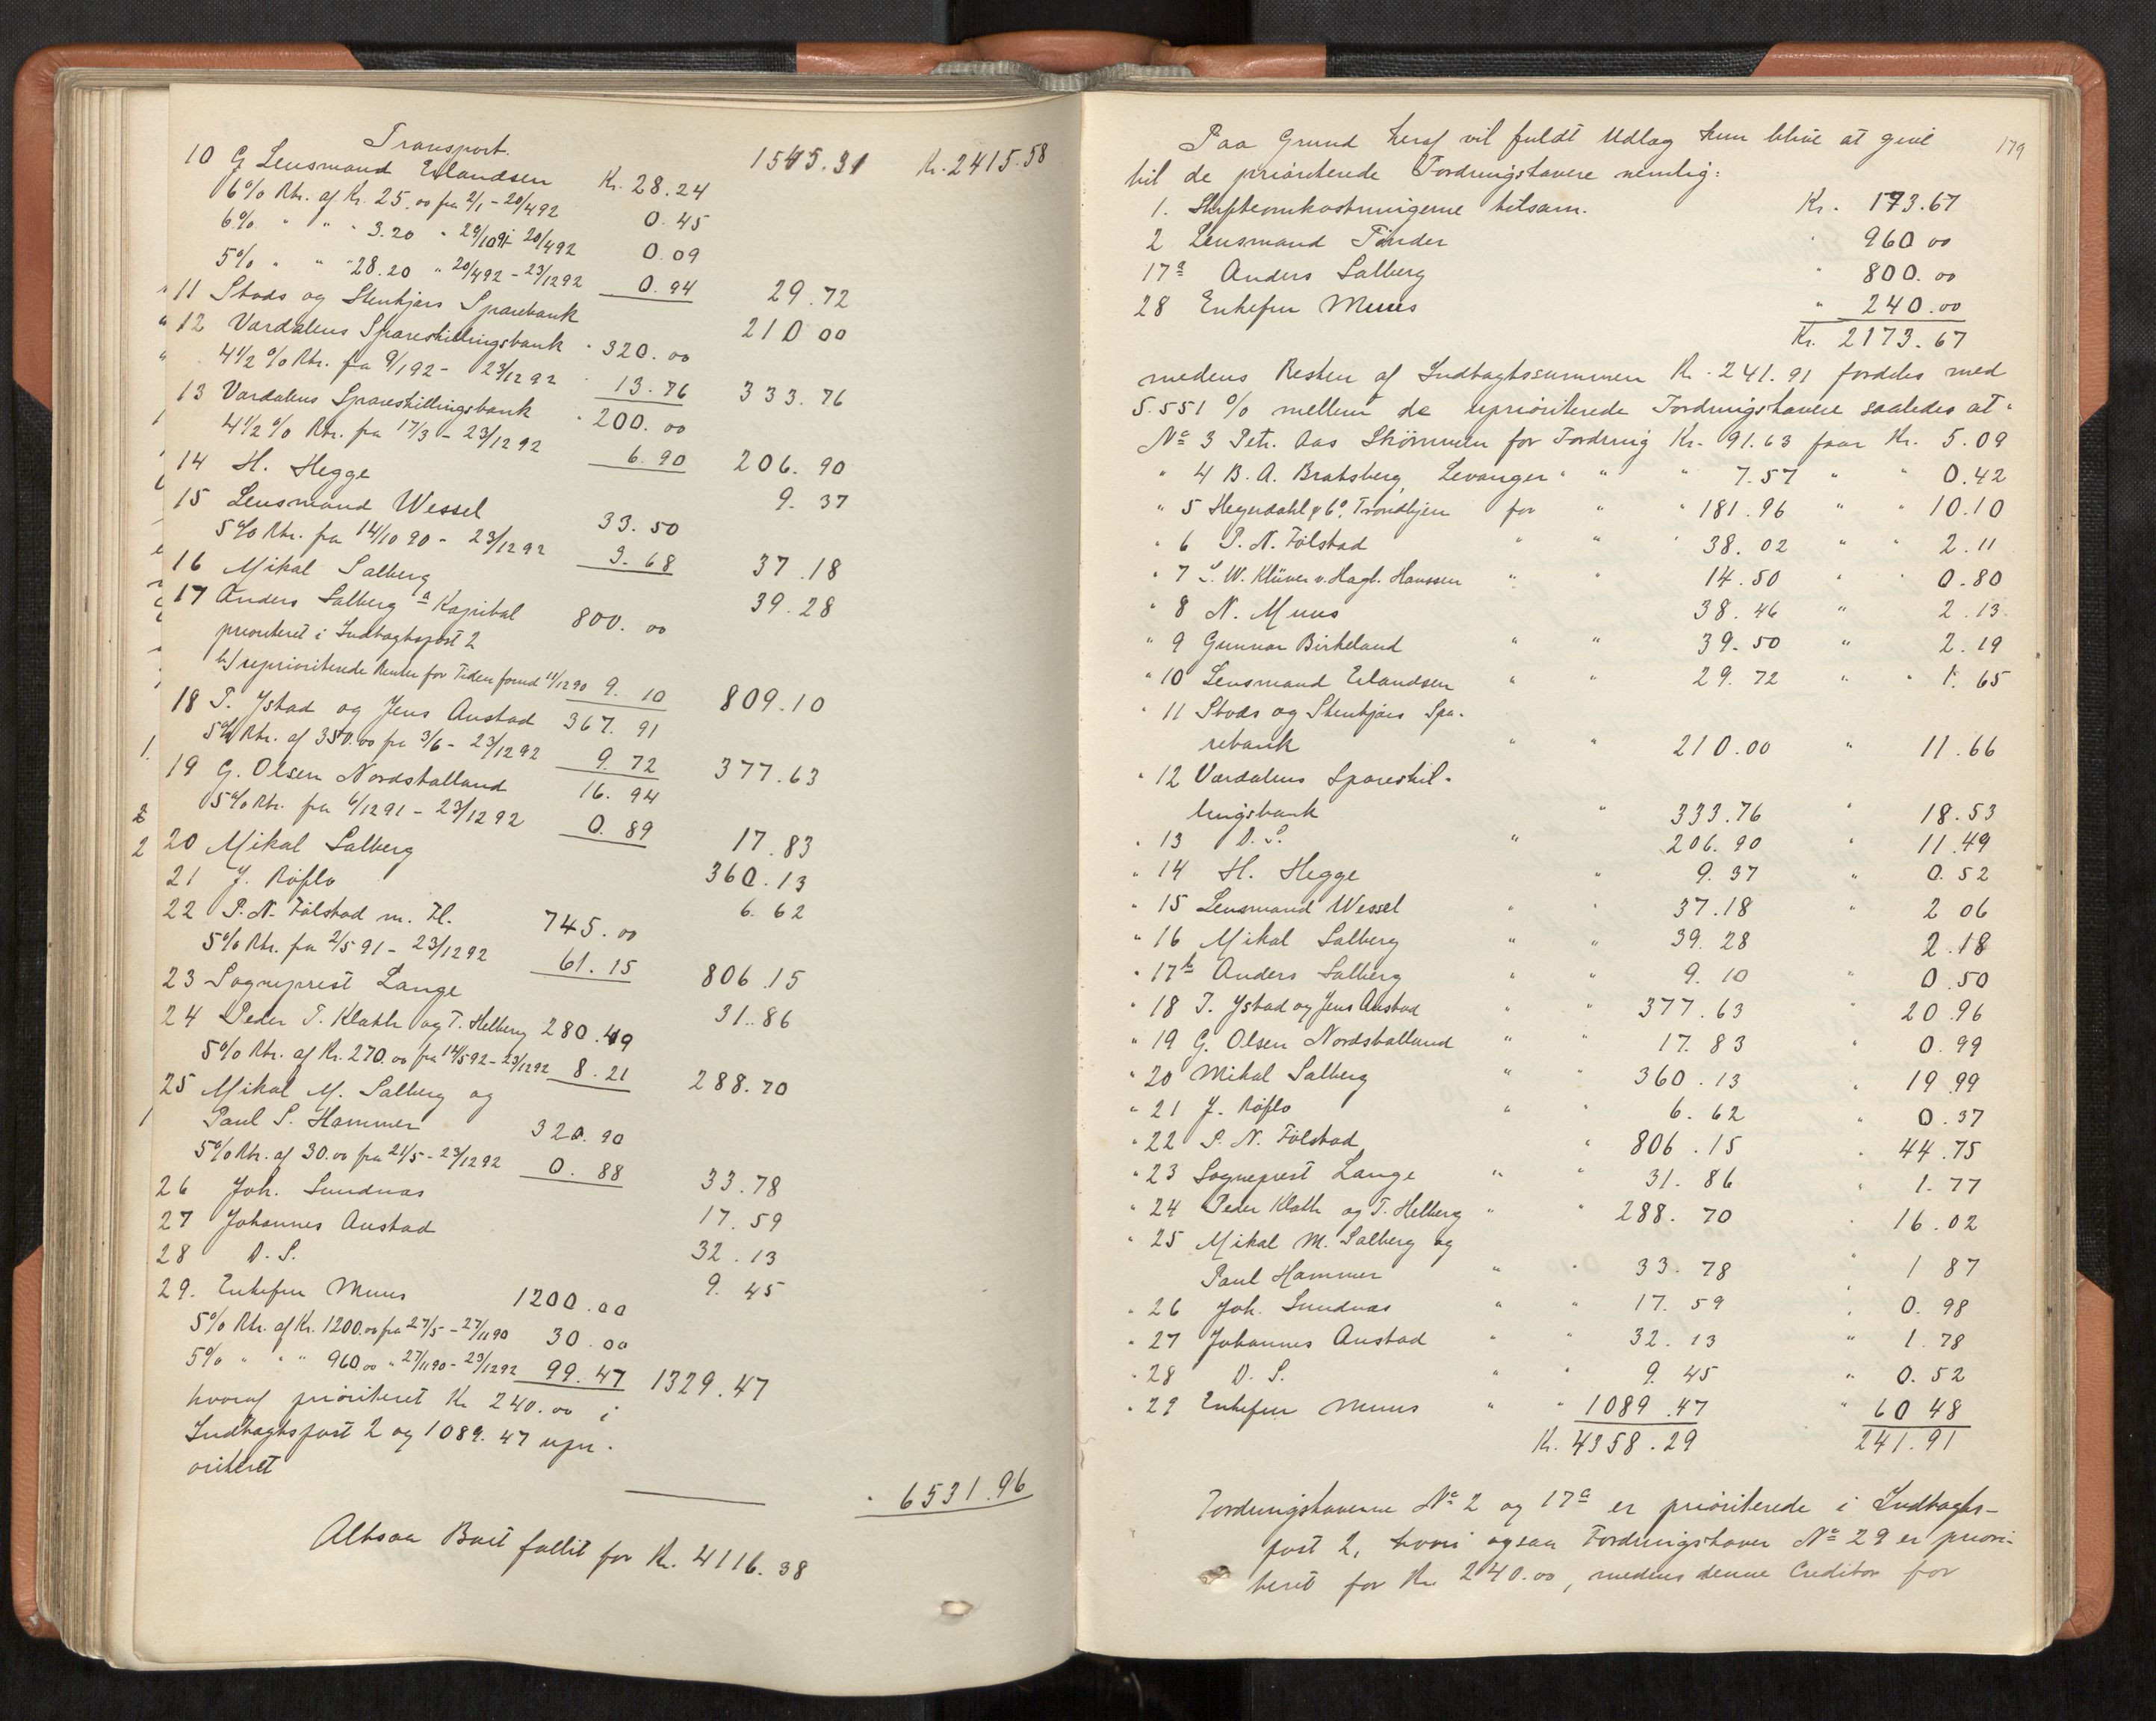 Transport. 1545.31 Kr. 2415.58
10 G Lensmand Erlandsen Kr. 28.24
6% Rtr. af Kr. 25.00 fra 2/1 - 20/4 92 0.45
6% " " " 3.20 " 29/10 91 - 20/4 92 0.09
5% " " " 28.20 " 20/4 92 - 23/12 92 0.94 29.72
11 Stods og Stenkjærs Sparebank 210 00
12 Værdalens Spareskillingsbank " 320.00
4 1/2 % Rtr. fra 9/1 92 - 23/12 92 " 13.76 333.76
13 Værdalens Spareskillingsbank " 200.00
4 1/2 % Rtr. fra 17/3 - 23/12 92 6.90 206.90
14 H. Hegge 9.37
15 Lensmand Wessel 33.50
5% Rtr. fra 14/10 90 - 23/12 92 3.68 37.18
16 Mikal Salberg 39.28
17 Anders Salberg a Kapital 800.00
prioriteret i Indtægtspost 2
b/ uprioriterede Renter for Tiden forud 11/12 90 9.10 809.10
18 T. Ystad og Jens Austad 367.91
5% Rtr. af 350.00 fra 3/6 - 23/12 92 9.72 377.63
19 G. Olsen Nordstalland 16.94
5% Rtr. fra 6/12 91 - 23/12 92 0.89 17.83
20 Mikal Salberg 360.13
21 J. Røflo 6.62
22 P. N. Følstad m. Fl. 745.00
5% Rtr. fra 2/5 91 - 23/12 92 61.15 806.15
23 Sogneprest Lange 31.86
24 Peder T. Klath og T. Helberg 280.49
5% Rtr. af Kr. 270.00 fra 14/5 92 - 23/12 92 8.21 288.70
25 Mikal M. Salberg og
Paul S. Hammer 32.90
5% Rtr. af 30.00 fra 21/5 - 23/12 92 0.88 33.78
26 Joh. Sundnæs 17.59
27 Johannes Austad 32.13
28 D. S. 9.45
29. Enkefru Muus 1200.00
5% Rtr. af Kr. 1200.00 fra 27/5 - 27/11 90 30.00
5% " " " 960.00 " 27/11 90 - 23/12 92 99.47 1329.47
hvoraf prioriteret Kr. 240.00 i
Indtægtspost 2 og 1089.47 upri-
oriteret
" 6531.96
Altsaa Boet fallit for Kr. 4116.38
179
Paa Grund heraf vil fuldt Udlæg kun blive at give
til de prioriterede Fordringshavere nemlig:
1. Skifteomkostningerne tilsam. Kr. 173.67
2 Lensmand Tinder " 960 00
17a Anders Salberg " 800.00
28 Enkefru Muus " 240.00
Kr. 2173.67
medens Resten af Indtægtssummen Kr. 241.91 fordeles med
5.551 % mellem de uprioriterede Fordringshavere saaledes at:
No 3 Petr. Aas Skrømmen for Fordring Kr. 91.63 faar Kr. 5.09
" 4 B. A. Bratsberg, Levanger " " " 7.57 " " 0.42
" 5 Heyerdahl & Co. Trondhjem for " " 181.96 " " 10.10
" 6 P. N. Følstad " " " 38.02 " " 2.11
" 7 L. W. Klüver v. Hagb. Hanssen " " 14.50 " " 0.80
" 8 N. Muus 38.46 " 2.13
" 9 Gunnar Birkeland " " 39.50 " 2.19
" 10 Lensmand Erlandsen " " 29.72 " " 1.65
" 11 Stods og Stenkjærs Spa-
rebank " " 210.00 " 11.66
" 12 Værdalens Spareskil-
lingsbank " 333.76 " 18.53
" 13 D. S. " 206.90 " 11.49
" 14 H. Hegge " 9.37 " 0.52
" 15 Lensmand Wessel " " 37.18 " 2 06
" 16 Mikal Salberg " " 39.28 2.18
" 17b Anders Salberg " " 9.10 " 0.50
" 18 T. Ystad og Jens Austad " " 377.63 " 20.96
" 19 G. Olsen Nordstalland " " 17.83 " 0.99
" 20 Mikal Salberg " " 360.13 " 19.99
" 21 J. Røflo " " 6.62 " 0.37
" 22 P. N. Følstad " 806.15 " 44.75
" 23 Sogneprest Lange " " 31.86 " 1.77
" 24 Peder Klath og T. Helberg " " 288.70 " 16.02
" 25 Mikal M. Salberg og
Paul Hammer " " 33.78 " 1 87
" 26 Joh. Sundnæs " " 17.59 " 0.98
" 27 Johannes Austad " " 32.13 " 1.78
" 28 D. S. " " 9.45 " 0.52
" 29 Enkefru Muus " " 1089.47 " 60 48
Kr. 4358.29 241.91
Fordringshaverne No 2 og 17a er prioriterede i Indtægts-
post 2, hvori ogsaa Fordringshaver No 29 er priori-
teret for Kr. 240.00, medens denne Creditor for